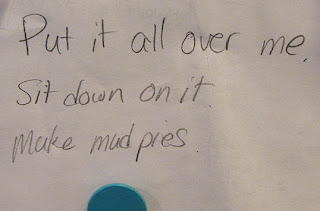 Put it all over me.
Sit down on it.
Make mud pies.